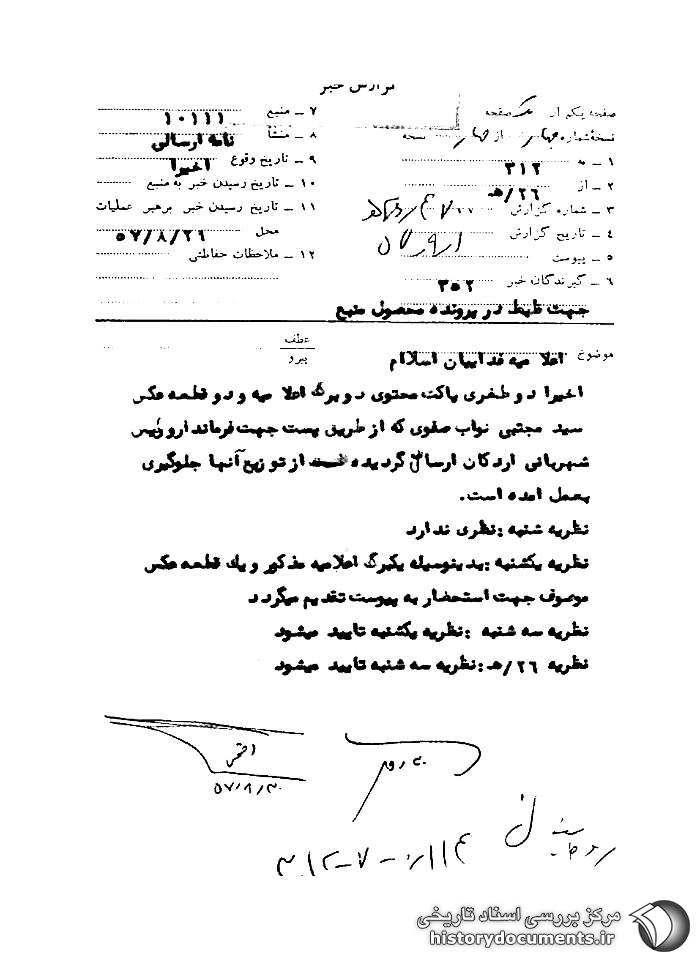 گزارش خبر
صفحه یکم از یک صفحه
نسخه شماره چهار از چهار نسخه
۱ – به ۳۱۲
۲ – از ۲۶/هـ
۳ – شماره گزارش
۴ – تاریخ گزارش
۵ – پیوست
۶ – گیرندگان خبر ۳۵۲
۷ – منبع ۱۰۱۱۱
۸ – منشأ نامه ارسالی
۹ – تاریخ وقوع اخیرا
۱۰ – تاریخ رسیدن خبر به منبع
۱۱ – تاریخ رسیدن خبر برهبر عملیات
محل ۵۷/۸/۲۶
۱۲ – ملاحظات حفاظتی
جهت ظبط در پرونده محصول منبع
موضوع اعلامیه فدائیان اسلام
عطف
پیرو
اخیرا دو طغری پاکت محتوی دو برگ اعلامیه و دو قطعه عکس
سید مجتبی نواب صفوی که از طریق پست جهت فرماندار و رئیس
شهربانی اردکان ارسال گردیده از توزیع آنها جلوگیری
بعمل امده است.
نظریه شنبه : نظری ندارد
نظریه یکشنبه : بدینوسیله یکبرگ اعلامیه مذکور و یک قطعه عکس
موصوف جهت استحضار به پیوست تقدیم میگردد
نظریه سه شنبه : نظریه یکشنبه تایید میشود
نظریه ۲۶/هـ : نظریه سه شنبه تایید میشود
۵۷/۸/۳۰
مرکز بررسی اسناد تاریخی
historydocuments.ir